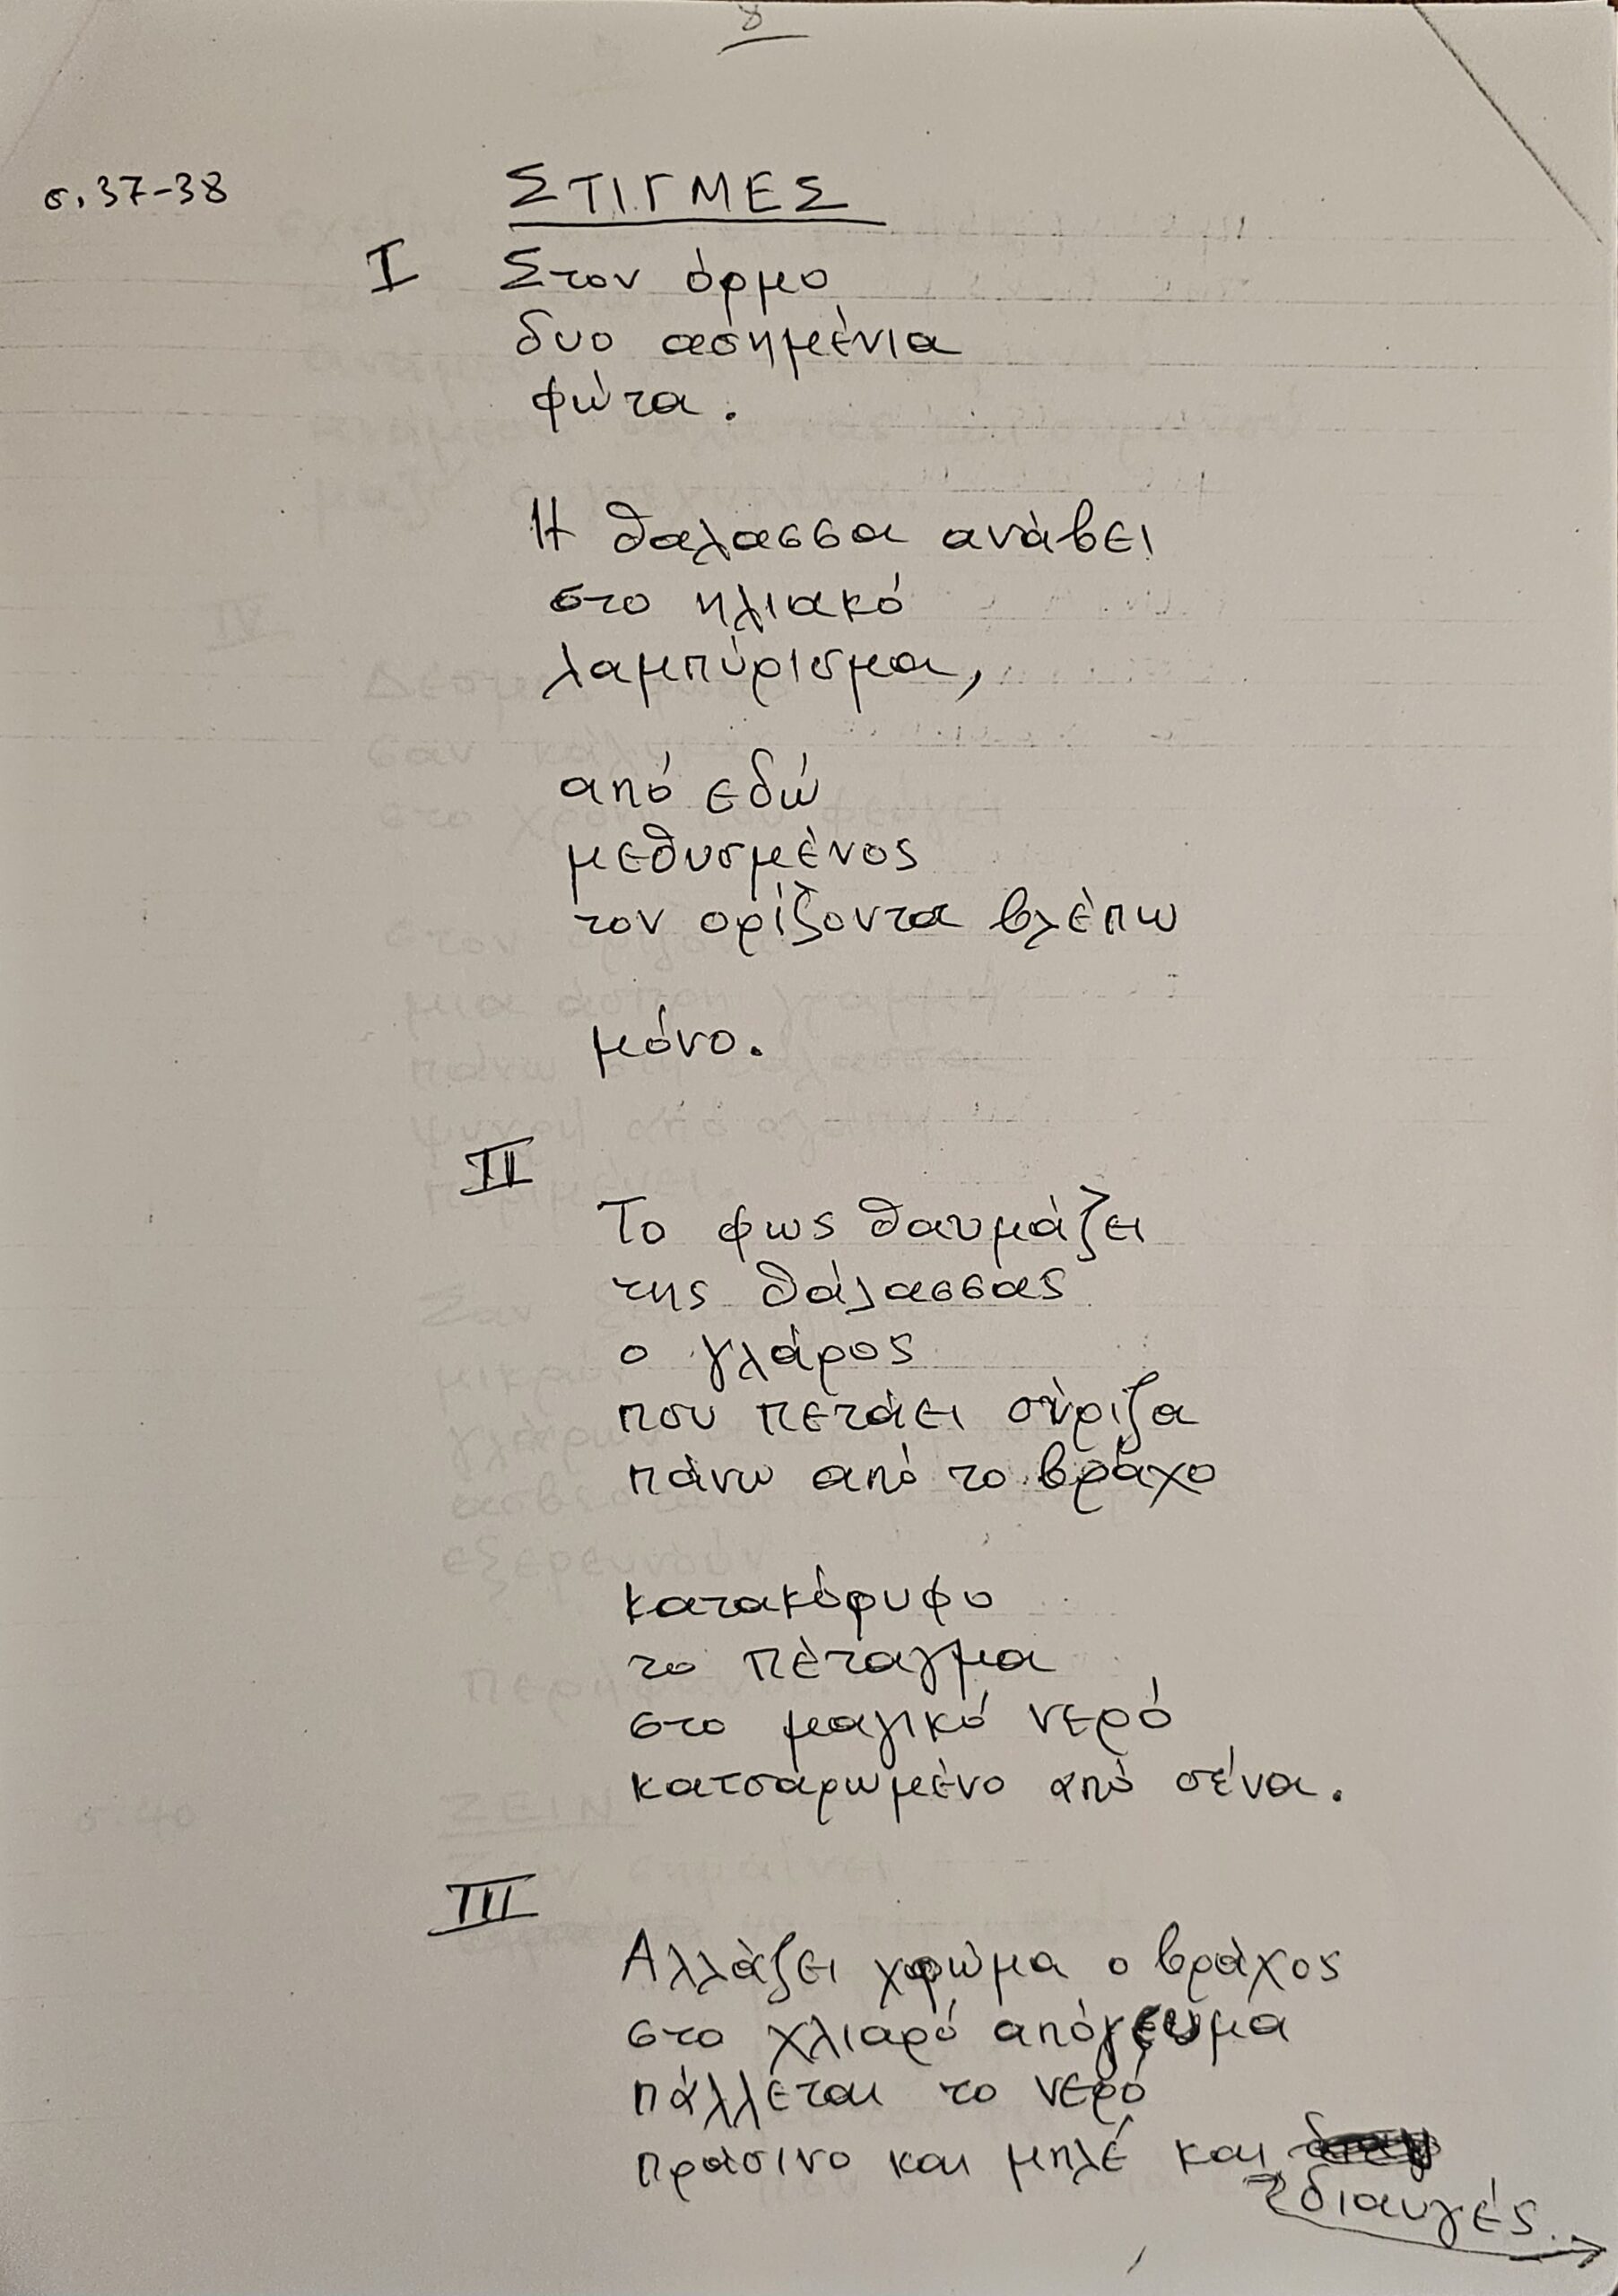 8
σ. 37-38
ΣΤΙΓΜΕΣ
I
Στον όρμο
δυο ασημένια
φώτα.
Η θαλασσα ανάβει
στο ηλιακό
λαμπύρισμα,
από εδώ
μεθυσμένος
τον ορίζοντα βλέπω
μόνο.
II
Το φως θαυμάζει
της θάλασσας
ο γλάρος
που πετάει σύριζα
πάνω από το βράχο
κατακόρυφο
το πέταγμα
στο μαγικό νερό
κατσαρωμένο από σένα.
III
Αλλάζει χρώμα ο βράχος
στο χλιαρό απόγευμα
πάλλεται το νερό
πράσινο και μπλέ και
διαυγές